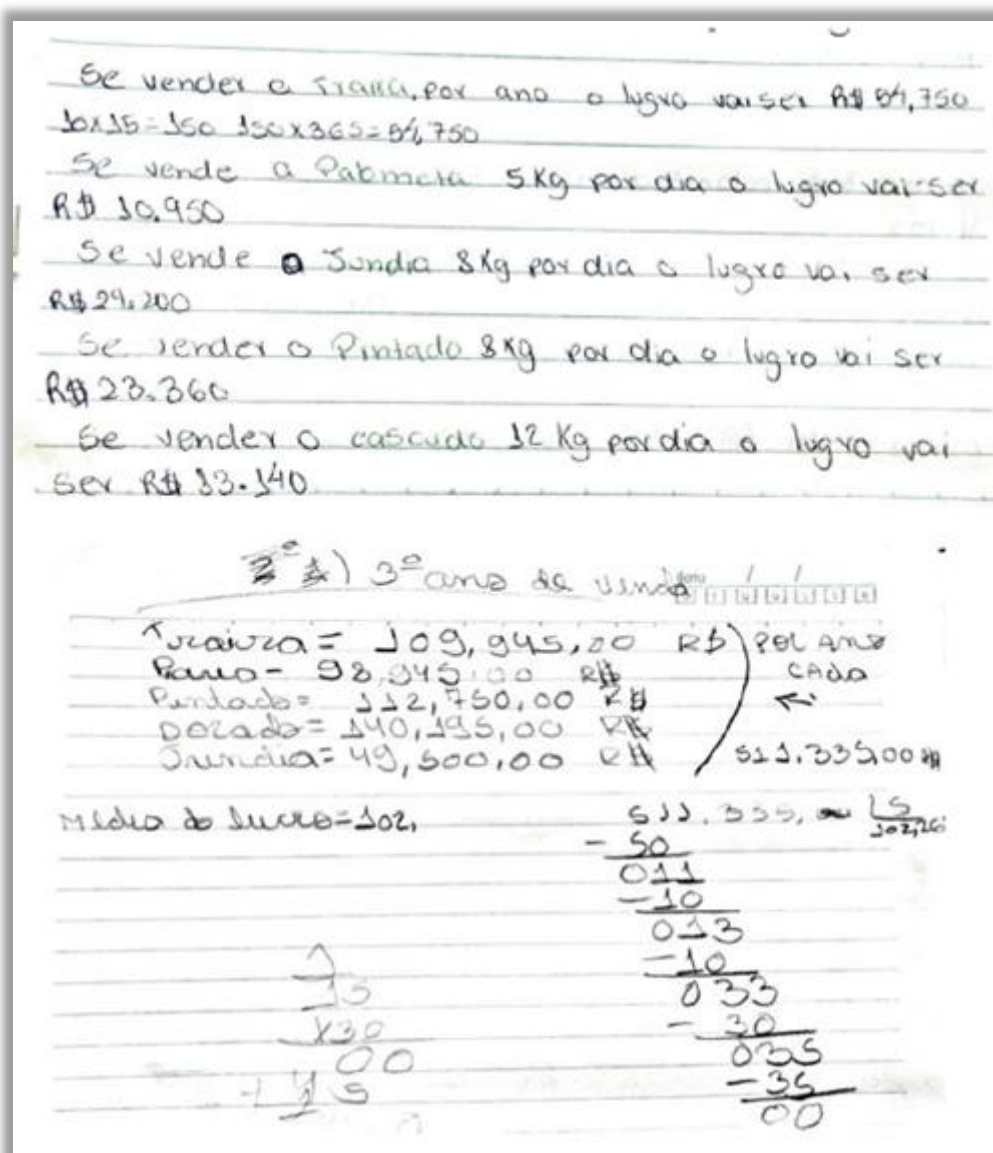 Se vender a Traíra, por ano o lugro vai ser R$ 54,750
10x15=150 150x365=54,750
Se vende a Palometa 5Kg por dia o lugro vai ser
R$ 10.950
Se vende o Jundia 8Kg por dia o lugro vai ser
R$ 29.200
Se vender o Pintado 8Kg por dia o lugro vai ser
R$ 23.360
Se vender o cascudo 12 Kg por dia o lugro vai
ser R$ 13.140
3º ano de venda
Traira = 109,945,00 R$ por ano
98,945,00 R$ cada
Pintado = 112,750,00 R$
Dorado = 140,195,00 R$
Jundia = 49,500,00 R$ 511.335,00
Média do lucro = 102,
511.335, 5
- 50
011
-10
013
-10
033
- 30
035
-35
00
15
x30
00